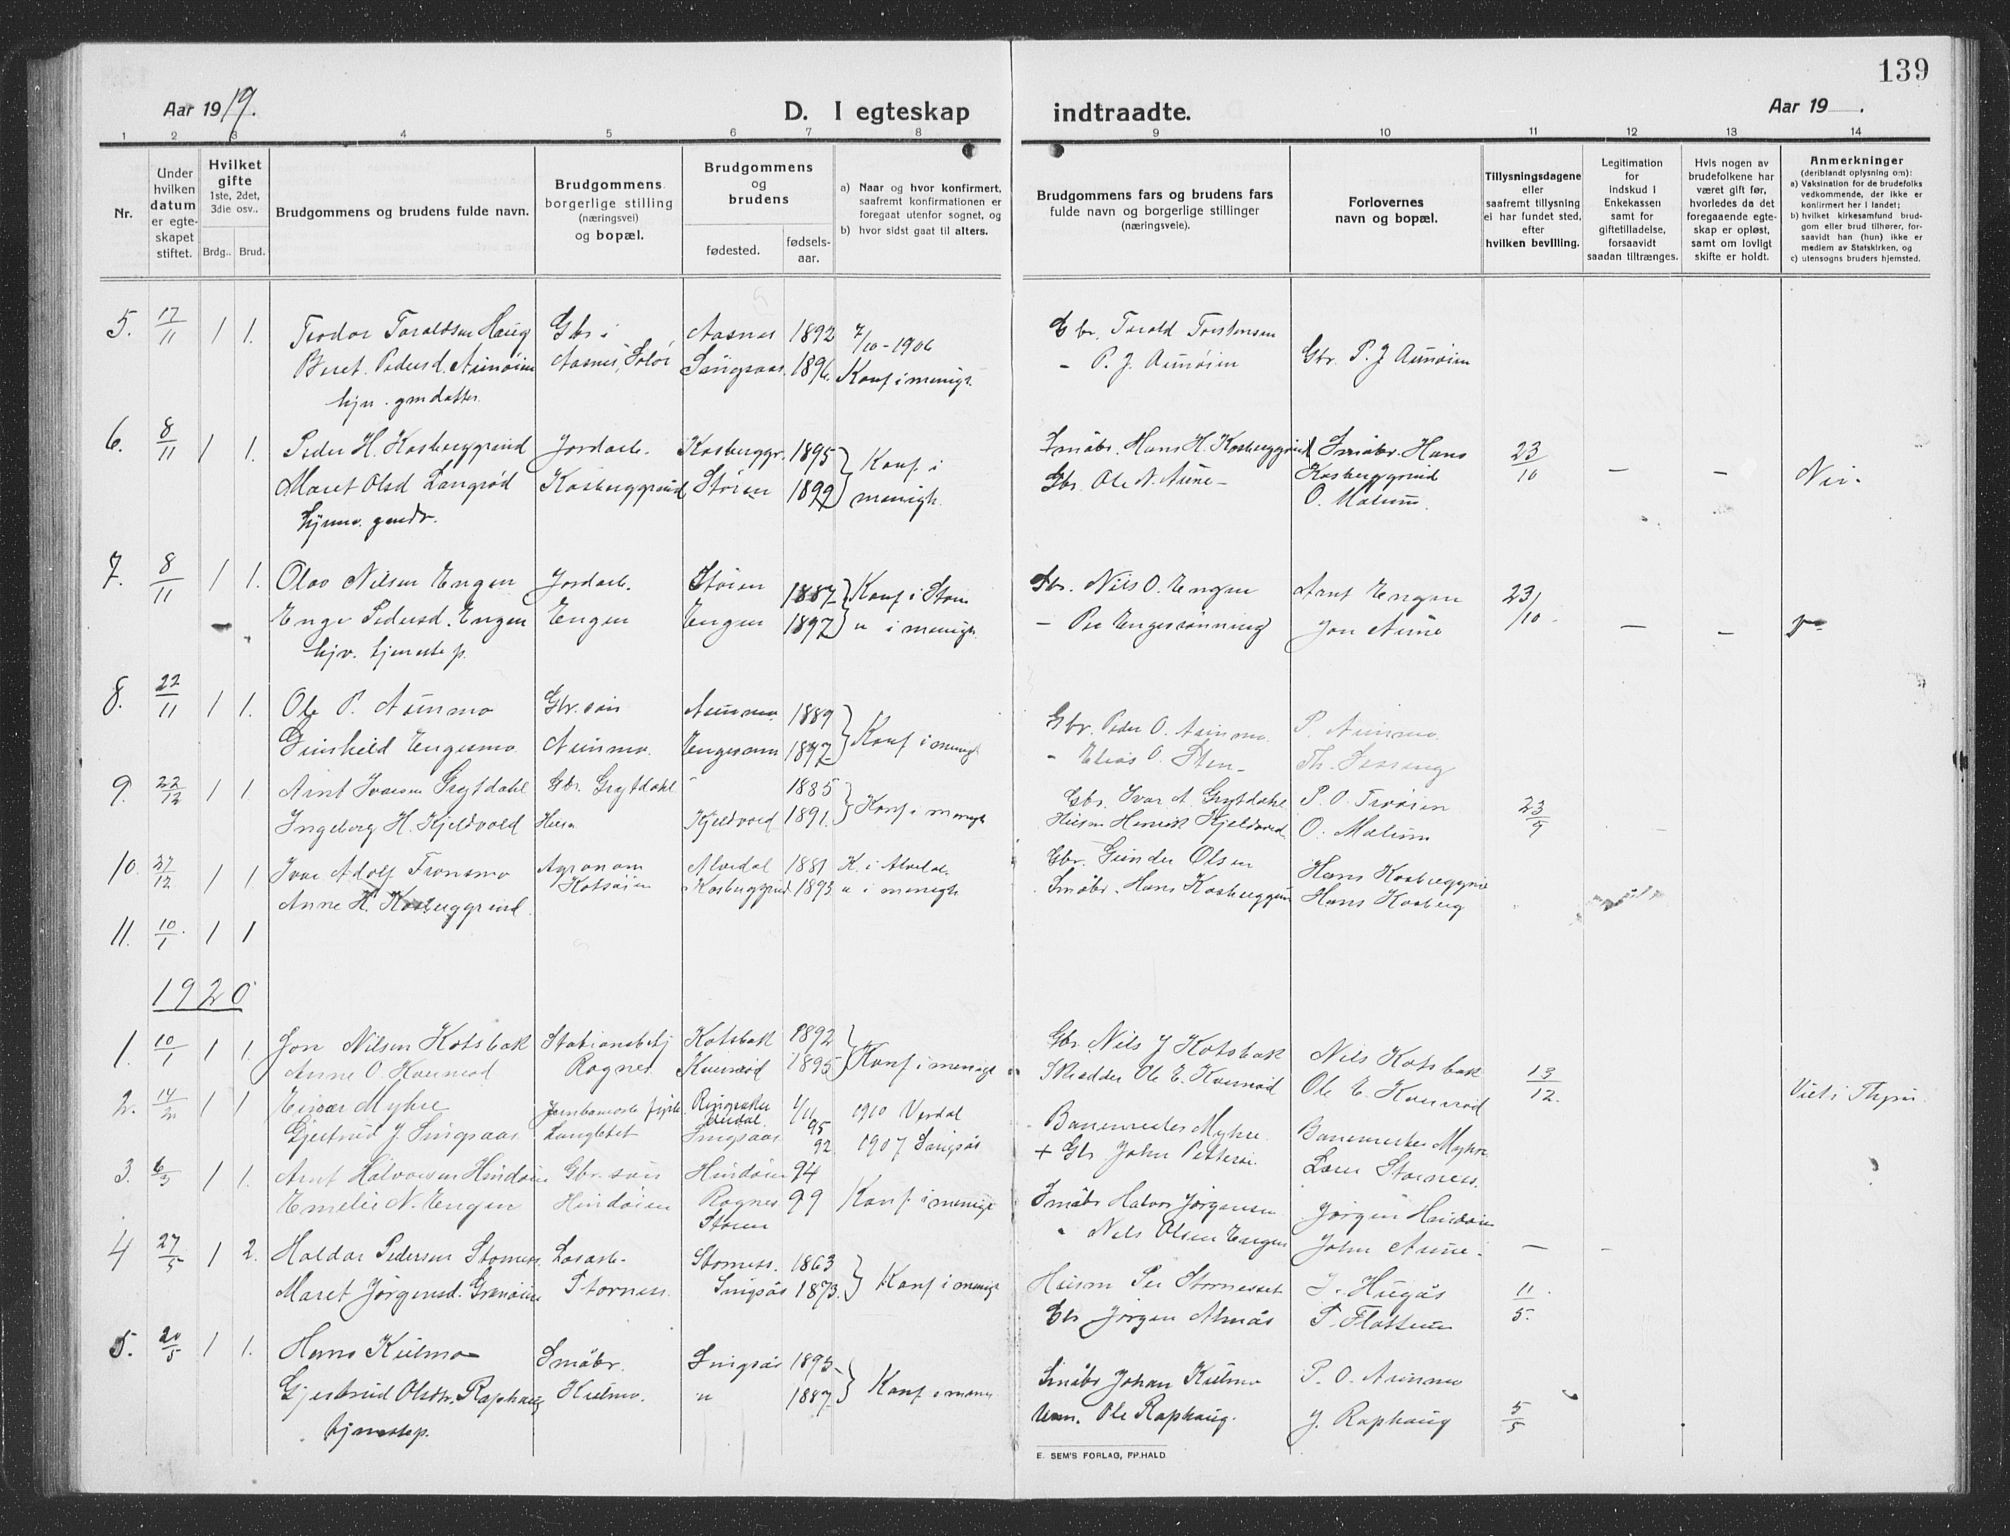 139
Aar 1919.
D. I egteskap indtraadte.
Aar 19 .
1 2 3 4 5 6 7 8 9 10 11 12 13 14
Nr.
Under hvilken datum er egte-skapet stiftet.
Hvilket gifte 1ste, 2det, 3die osv..
Brdg.. Brud.
Brudgommens og brudens fulde navn.
Brudgommens borgerlige stilling (næringsvei) og bopæl.
Brudgommens og brudens
fødested. fødsels-aar.
a) Naar og hvor konfirmert, saafremt konfirmationen er foregaat utenfor sognet, og
b) hvor sidst gaat til alters.
Brudgommens fars og brudens fars fulde navn og borgerlige stillinger (næringsveie).
Forlovernes navn og bopæl.
Tillysningsdagene eller saafremt tillysning ei har fundet sted, efter hvilken bevilling.
Legitimation for indskud i Enkekassen samt for giftetilladelse, forsaavidt saadan tiltrænges.
Hvis nogen av brudefolkene har været gift før, hvorledes da det foregaaende egte-skap er opløst, samt om lovligt skifte er holdt.
Anmerkninger (deriblandt oplysning om):
a) Vaksination for de brudefolks vedkommende, der ikke er konfirmert her i landet;
b) hvilket kirkesamfund brud-gom eller brud tilhører, for-saavidt han (hun) ikke er medlem av Statskirken, og
c) utensogns bruders hjemsted.
5. 17/11 1 1. Teodor Taraldsen Haug Gbr. i Aasnes 1892 7/10-1906 Gbr. Tarald Torstensen
Beret Pedersd. Aunøien Aasnes, Solør Singsaas 1896. Konf i menigh. - P. J. Aunøien Gbr. P. J Aunøien
hjv. gmdatter
6. 8/11 1 1. Peder H. Kosberggrind Jordarb. Kosberggr. 1895 Konf i Småbr. Hans H. Kosberggrind Småbr. Hans 23/10 - -
Maret Olsd Langrød Kosberggrind Støren 1899 menigh. Gbr. Ole N. Aune - Kosberggrind
O. Malum.
hjemmev. gmdr.
7. 8/11 1 1. Olav Nilsen Engen Jordarb. Støren 1887 Konf i Støren Gbr. Nils O. Engen Arnt Engen 23/10 - -
Pedersd. Engen Engen Engen 1897 " i menigh. - Per Engesrønning Jon Aune
hjv. tjenestep.
8. 22/11 1 1. Ole P. Aunmo Gbr. søn Aunmo 1889 Konf i menigh Gbr. Peder O. Aunmo P. Aunmo
Gunhild Engesmo. Aunmo. Engesmo 1897 - Elias O. Sten -
9. 22/12 1 1 Arnt Ivarsen Grytdahl Gbr. Grytdahl " 1885 Konf i menigh Gbr. Ivar A. Grytdahl P. O. Troøien 23/9
Ingeborg H. Kjeldvold Kjeldvold 1891. Husm Henrik Kjeldvold O. Malum
10. 27/12 1 1 Ivar Adolf Tronsmo Agronom Alvdal 1881 K. i Alvdal Gbr. Gunder Olsen Hans Kosberggrind
Anne H. Kosberggrind Kotsøien Kosberggrind 1893 " i menigh Småbr. Hans Kosberggrind Hans Kosberg
11. 10/1 1 1
1920
1. 10/1 1 1. Jon Nilsen Kotsbak Stationsbetj Kotsbak 1892 Konf i menigh Gbr. Nils J Kotsbak Nils Kotsbak 13/12.
Anne O. Kvernrød Rognes Kvernrød 1895 Skrædder Ole E. Kvernrød Ole E. Kvernrød
2. 14/2 1 1 Einar Myhre Ringsaker 4/11 95 1910 Verdal Banemester Myhre Banemester Myhre Viet i
Gjertrud J. Singsaas Langletet Singsaas 92 1907 Singsås + Gbr John Pettersen Lars Storness.
3. 6/3 1 1. Arnt Halvorsen Hindøien Gbr. søn Hindøien 94 Konf i menigh Småbr Halvor Jørgensen Jørgen Hindøien
Emelie N. Engen Hindøien Rognes Støren 99 " Nils Olsen Engen John Aune. - -
4 27/5 1 2. Haldor Pedersen Storness. Løsarb. Storness. 1863 Konf i menigh Husm Per Stornesset J. Hugås 11/5.
Maret Jørgensd. Granøien Storness. Singsås 1873. Gbr Jørgen Almås P. Flottum
5. 20/5 1 1. Hans Kulmo Småbr. Singsås 1893 Konf i menigh Småbr Johan Kulmo P. O. Aunmo 5/5
Gjertrud Olsdtr. Raphaug Kulmo. " 1887 Ole Raphaug. J. Raphaug
tjenestep.
E. SEM'S FORLAG, FR.HALD